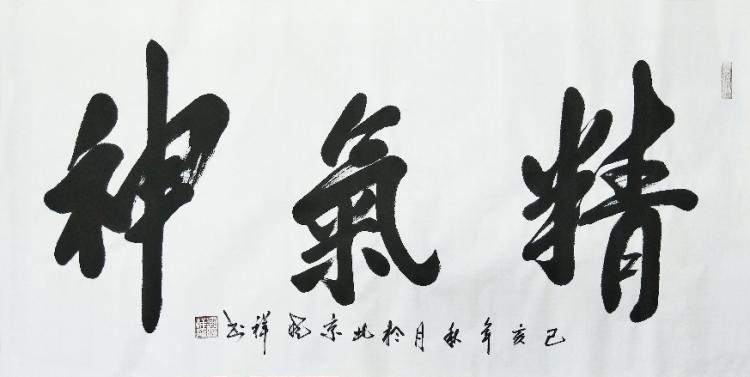 精氣神
己亥年秋月於北京 祥书